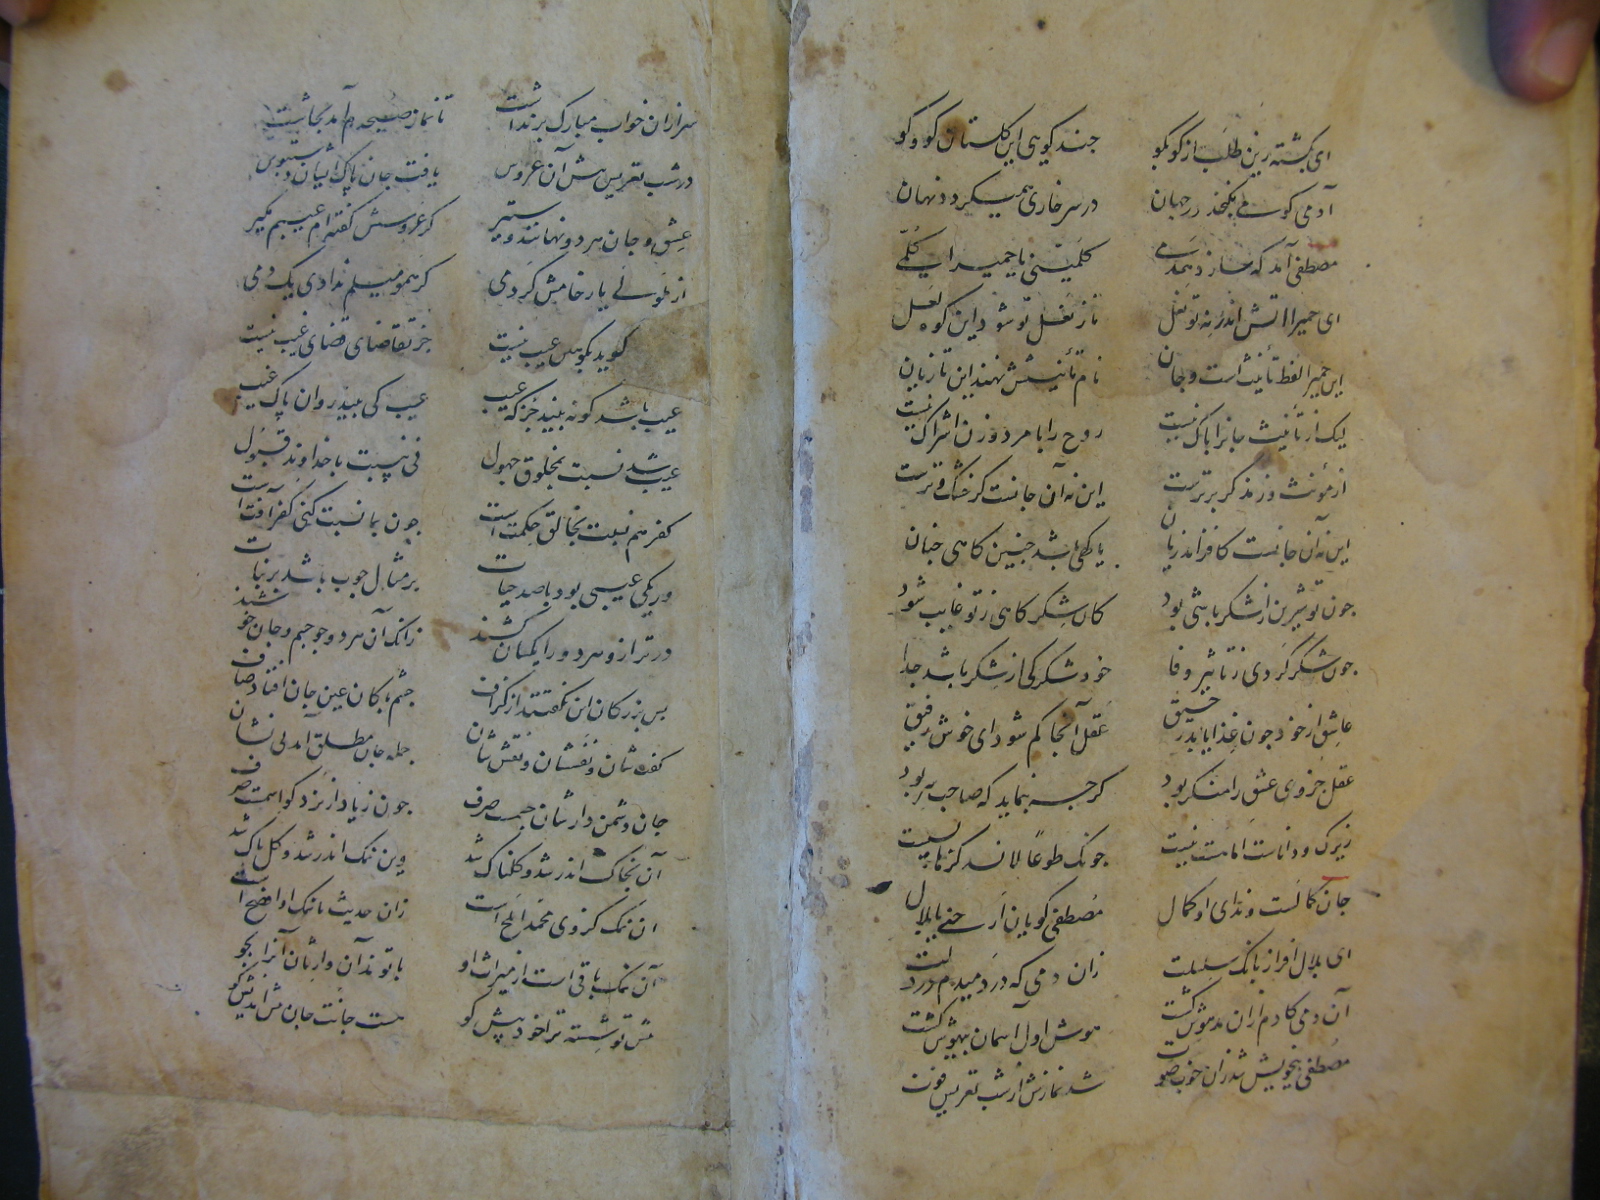 ای بکشته زین طلب از کو بکو چند کوی این کلستان کو و کو
آدمی کو می نکنجد در جهان در سر خاری همیکردد نهان
مصطفی آمد که سازد همدمی کلمینی یا حمیرا کلمی
ای حمیرا آتش اندر نه تو نعل تا ز نعل تو شود این کوه لعل
این حمیرا لفظ تأنیث است و جان نام تأنیثش نهند این تازیان
لیک از تأنیث جانرا باک نیست روح را با مرد و زن اشراک نیست
از مؤنث وز مذکر برترست این نه آن جانست کز خشک و ترست
این نه آن جانست کافزاید ز نان یا کهی باشد چنین کاهی چنان
چون تو شیرین از شکر باشی بود کان شکر کاهی ز تو غایب شود
چون شکر کردی ز تاثیر وفا خود شکر کی از شکر باشد جدا
عاشق از خود چون غذا یابد رحیق عقل آنجا کم شود ای خوش رفیق
عقل جزوی عشق را منکر بود کرچه بنماید که صاحب سر بود
زیرک و داناست اما نیست نیست چونک طوعا لا نشد کرها بسیست
جان کمالست و ندای او کمال مصطفی کویان ارحنی یا بلال
ای بلال افراز بانک سلسلت زان دمی که دردمیدم در دلت
آن دمی کادم ازان مدهوش کشت هوش اول آسمان بیهوش کشت
مصطفی بیخویش شد زان خوب صوت شد نمازش از شب تعریس فوت
سر ازان خواب مبارک برنداشت تا نماز صبحدم آمد بچاشت
در شب تعریس پیش آن عروس یافت جان پاک ایشان دستبوس
عشق و جان هر دو نهانند و ستیر کر عروسش گفته ام عیبم مکیر
از ملولی یار خامش کردمی کر همو مهلم ندادی یک دمی
کوید بکو هین عیب نیست جز تقاضای قضای غیب نیست
عیب باشد کو نه بیند جز که عیب عیب کی بیند روان پاک غیب
عیب شد نسبت بمخلوق جهول نی نسبت با خداوند قبول
کفر هم نسبت بخالق حکمت است چون بما نسبت کنی کفر آفت است
ور یکی عیبی بود با صد حیات بر مثال چوب باشد در نبات
در ترازو هر دو را یکسان کشند زانک آن هر دو چو جسم و جان خوشند
بس بزرکان این نکفتند از کزاف جسم پاکان عین جان افتاد صاف
کفت شان و نفسشان و نقش شان جمله جان مطلق آمد بی نشان
جان دشمن دارشان جسمست صرف چون زیاد از نرد کو اسمست صرف
آن بخاک اندر شد و کل خاک شد وین نمک اندر شد و کل پاک شد
آن نمک کز وی محمد املح است زان حدیث با نمک او افصح است
آن نمک باقی است از میراث او با تو اند آن وارثان آنرا بجو
پیش تو شسته ترا خود پیش کو پیش هستت جان پیش اندیش کو